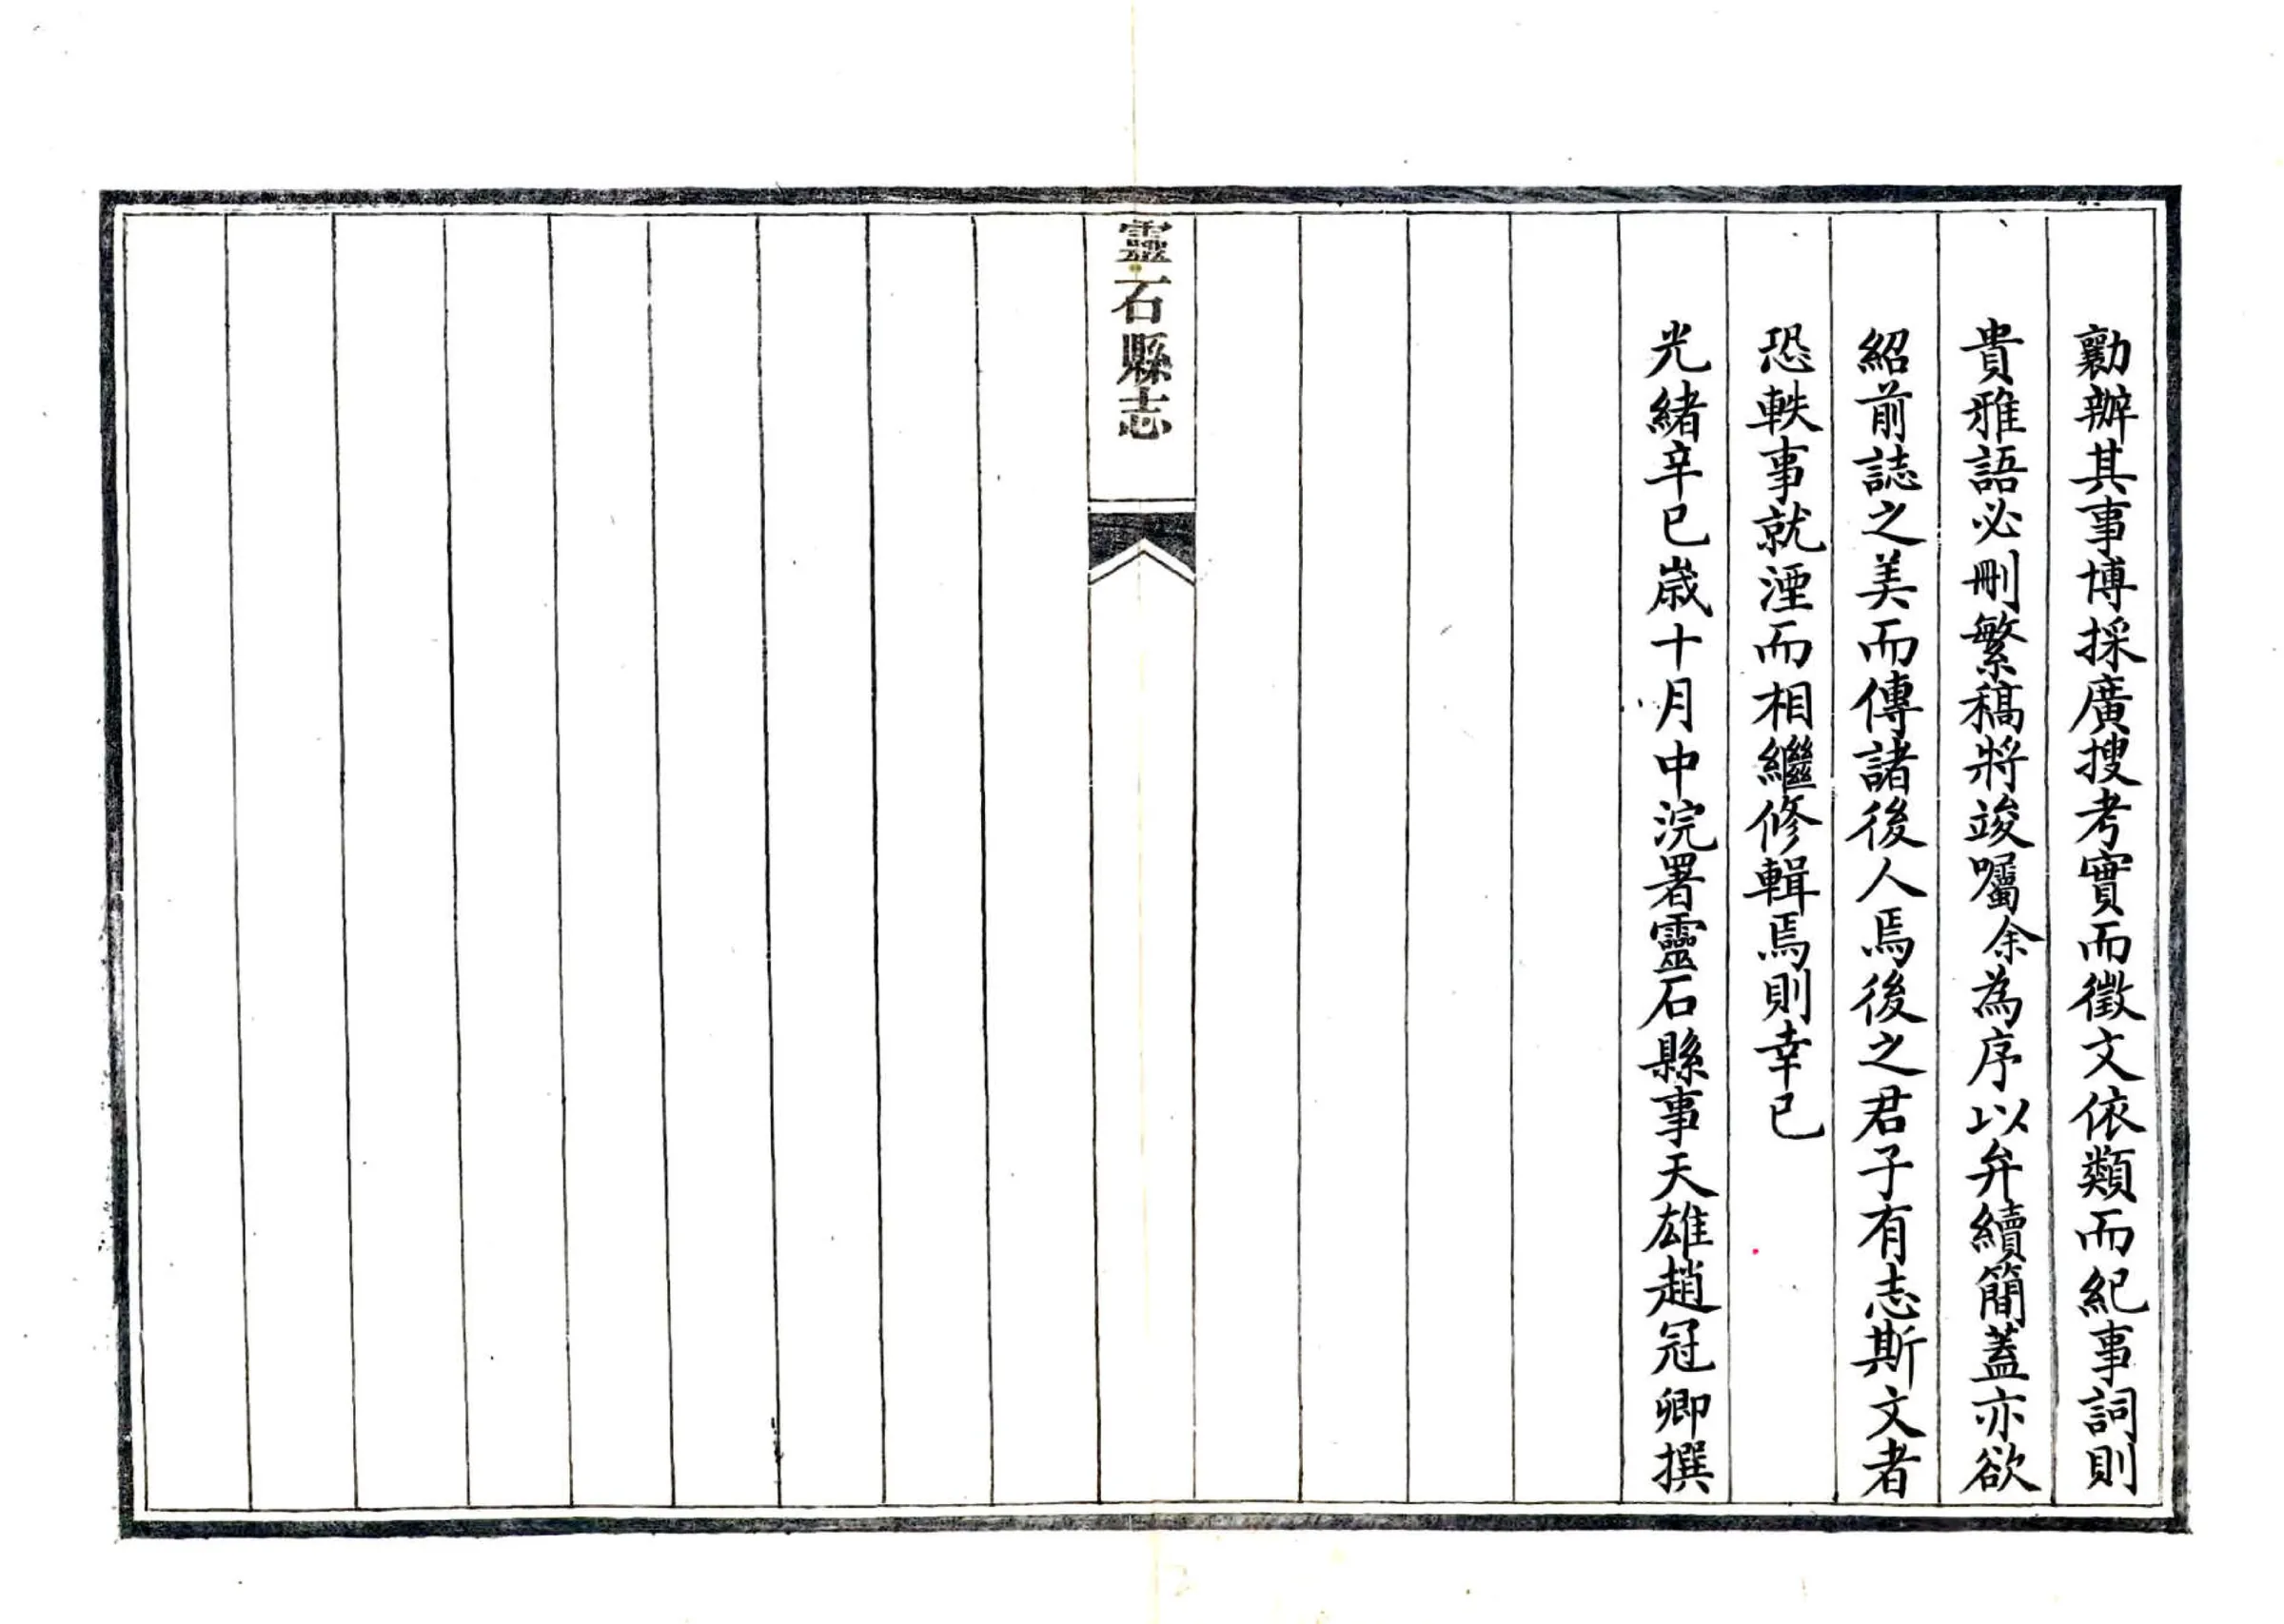 勷辦其事博採廣搜考實而徵文依類而紀事詞則
貴雅語必刪繁稿將竣囑余為序以弁續簡蓋亦欲
紹前誌之美而傳諸後人焉後之君子有志斯文者
恐軼事就湮而相繼修輯焉則幸已
光緒辛巳歲十月中浣署靈石縣事天雄趙冠卿撰
靈石縣志